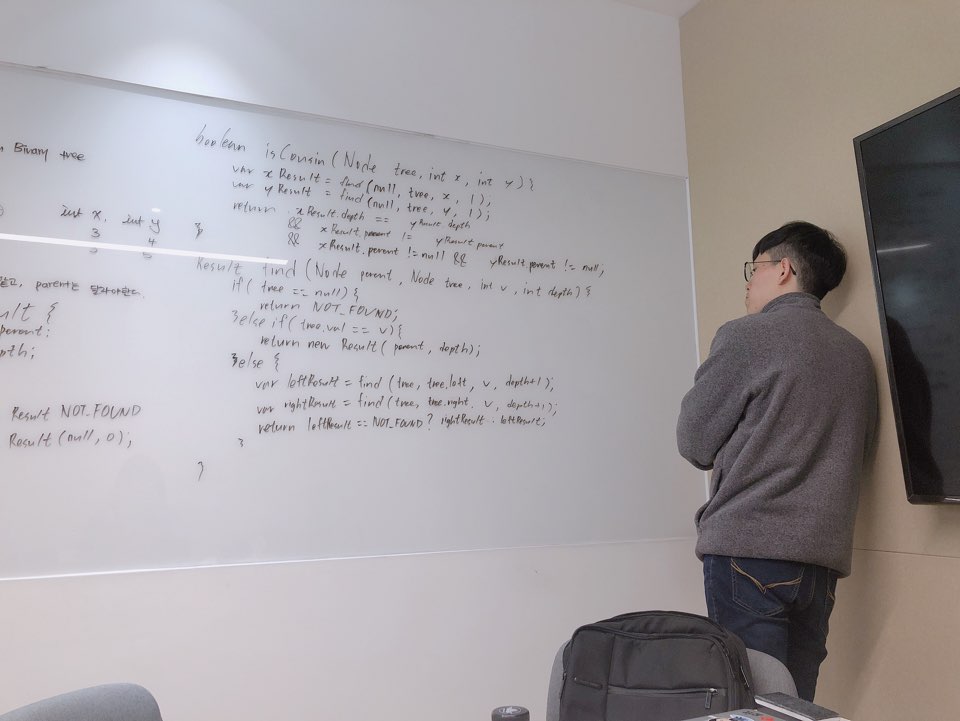 Binary tree
int x, int y
3 4
고, parent는 달라야한다.
ult {
parent;
pth;
Result NOT_FOUND
Result (null, 0);
boolean isCousin (Node tree, int x, int y) {
var xResult = find (null, tree, x, 1);
var yResult = find (null, tree, y, 1);
return xResult.depth == yResult.depth
&& xResult.parent != yResult.parent
&& xResult.parent != null && yResult.parent != null;
}
Result find (Node parent, Node tree, int v, int depth) {
if (tree == null) {
return NOT_FOUND;
}else if (tree.val == v) {
return new Result (parent, depth);
}else {
var leftResult = find (tree, tree.left, v, depth+1);
var rightResult = find (tree, tree.right, v, depth+1);
return leftResult == NOT_FOUND ? rightResult : leftResult;
}
}